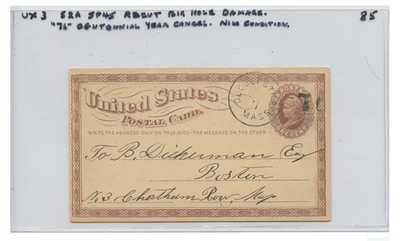 UX3 S2A SP45 ABOUT PIN HOLE DAMAGE. 85
"76" CENTENNIAL YEAR CANCEL. NICE CONDITION.
United States
POSTAL CARD.
WRITE THE ADDRESS ONLY ON THIS SIDE-THE MESSAGE ON THE OTHER
MASS
ONE CENT
To B. Dickerman Esq
Boston
No 3 Chatham Row,